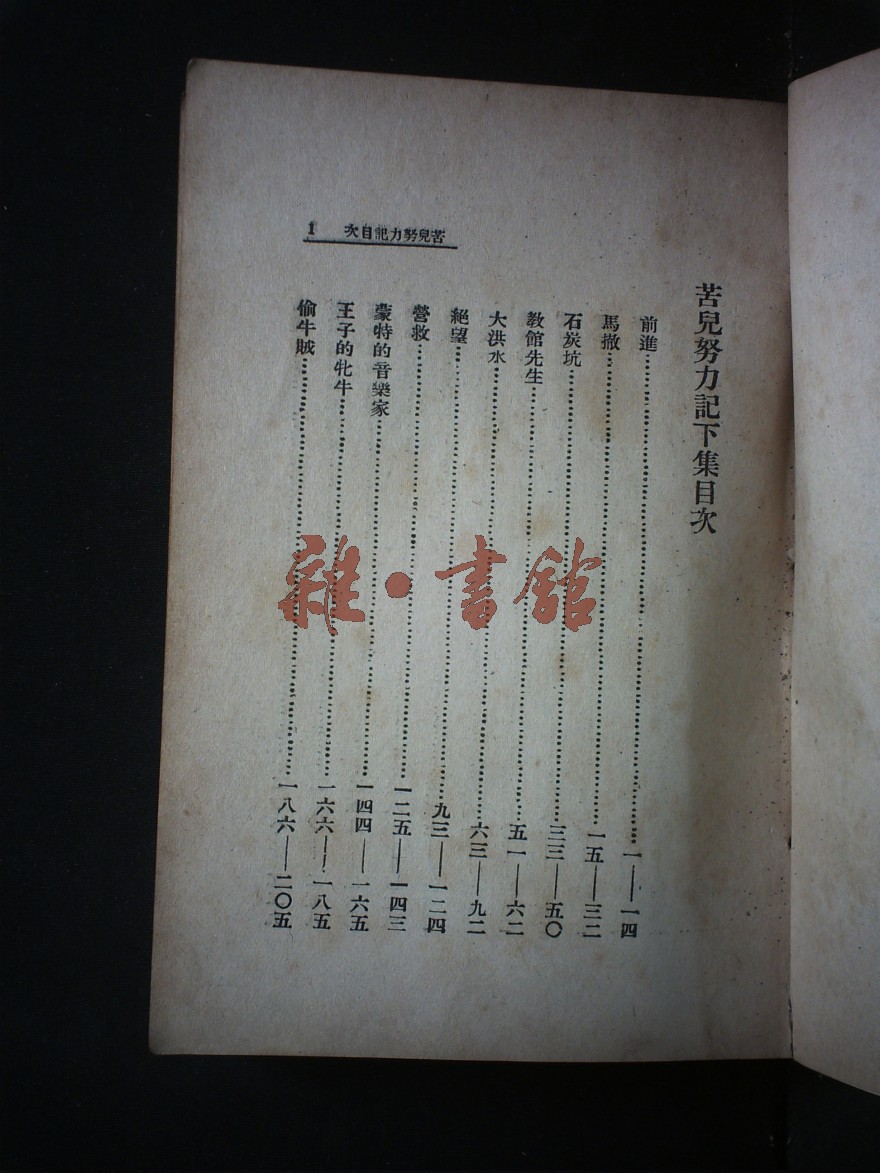 苦兒努力記目次 1
苦兒努力記下集目次
前進……一——一四
馬撒……一五——三二
石炭坑……三三——五〇
教館先生……五一——六二
大洪水……六三——九二
絕望……九三——一二四
營救……一二五——一四三
蒙特的音樂家……一四四——一六五
王子的牝牛……一六六——一八五
偷牛賊……一八六——二〇五
雜·書館